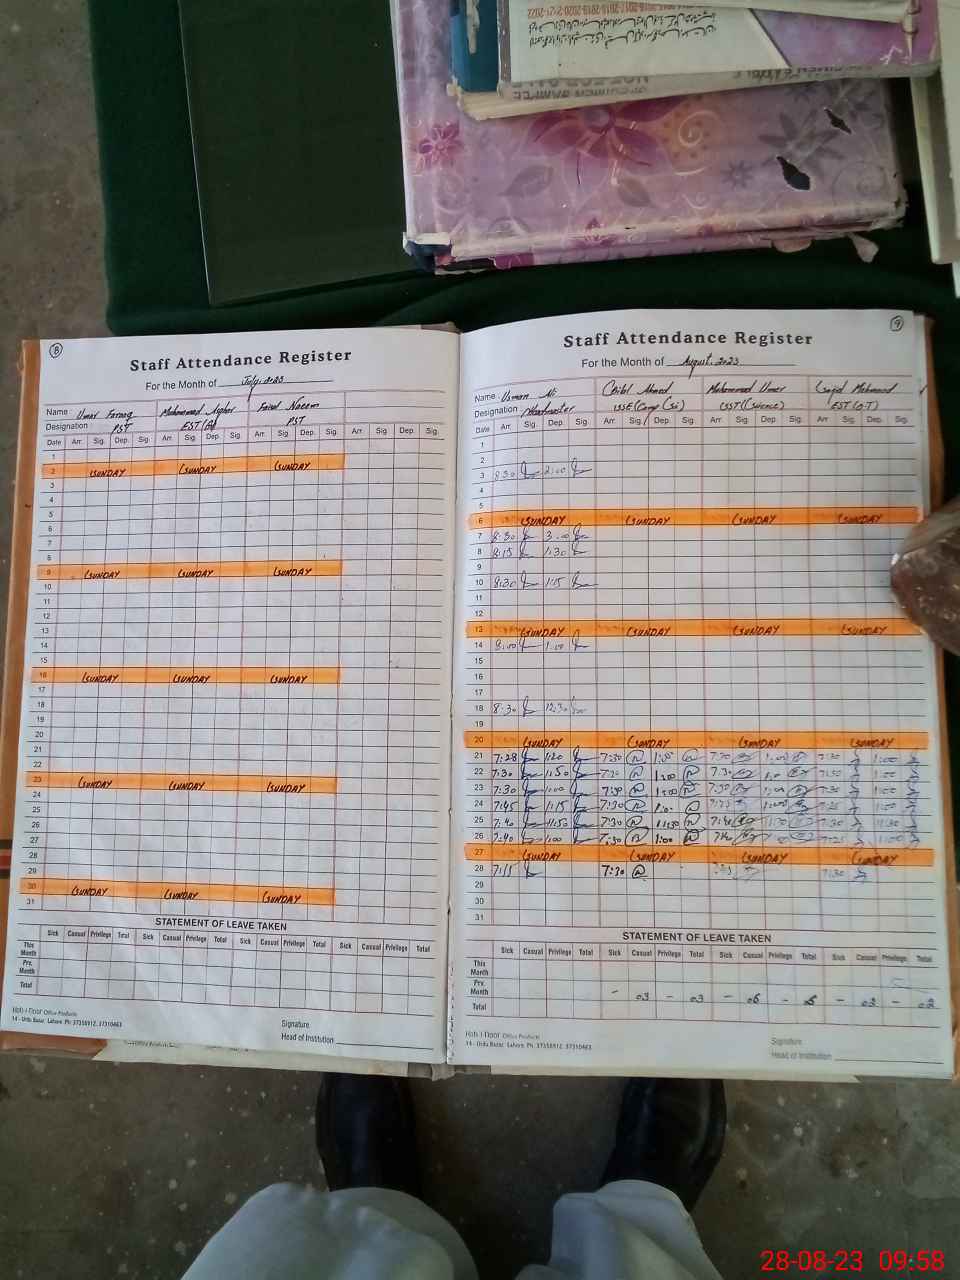 ⑧
Staff Attendance Register
For the Month of July, 2023
Name Umar Farooq Muhammad Asghar Faisal Naeem
Designation PST EST PST
Date Arr. Sig. Dep. Sig. Arr. Sig. Dep. Sig. Arr. Sig. Dep. Sig. Arr. Sig. Dep. Sig.
1
2 SUNDAY SUNDAY SUNDAY
3
4
5
6
7
8
9 SUNDAY SUNDAY SUNDAY
10
11
12
13
14
15
16 SUNDAY SUNDAY SUNDAY
17
18
19
20
21
22
23 SUNDAY SUNDAY SUNDAY
24
25
26
27
28
29
30 SUNDAY SUNDAY SUNDAY
31
STATEMENT OF LEAVE TAKEN
Sick Casual Privilege Total Sick Casual Privilege Total Sick Casual Privilege Total Sick Casual Privilege Total
This Month
Prv. Month
Total
Office Products
14 - Urdu Bazar, Lahore. Ph: 37358912, 37310463
Signature
Head of Institution
⑨
Staff Attendance Register
For the Month of August, 2023
Name Usman Ali Ahmed Muhammad Umer Sajid Mehmood
Designation Headmaster SSE(Comp.Sci) SST(Science) EST(O.T)
Date Arr. Sig. Dep. Sig. Arr. Sig. Dep. Sig. Arr. Sig. Dep. Sig. Arr. Sig. Dep. Sig.
1
2
3 8:30 2:00
4
5
6 SUNDAY SUNDAY SUNDAY SUNDAY
7 8:30 3:00
8 8:15 1:30
9
10 8:30 1:15
11
12
13 SUNDAY SUNDAY SUNDAY SUNDAY
14 8:00 1:00
15
16
17
18 8:30 12:30
19
20 SUNDAY SUNDAY SUNDAY SUNDAY
21 7:28 1:20 7:30 1:00 7:30 1:00 7:30 1:00
22 7:30 11:50 7:30 1:00 7:30 7:30 1:00
23 7:30 1:00 7:30 1:00 7:30 1:00
24 7:45 1:15 7:30 1:00 1:00
25 7:40 11:50 7:30 11:30 7:40 7:30 11:30
26 7:40 1:00 7:30 1:00 7:40 7:25
27 SUNDAY SUNDAY SUNDAY SUNDAY
28 7:15 7:30 7:30
29
30
31
STATEMENT OF LEAVE TAKEN
Sick Casual Privilege Total Sick Casual Privilege Total Sick Casual Privilege Total Sick Casual Privilege Total
This Month
Prv. Month
Total - 03 - 03 - 05 - - 02 - 02
Office Products
14 - Urdu Bazar, Lahore. Ph: 37358912, 37310463
Signature
Head of Institution
28-08-23 09:58